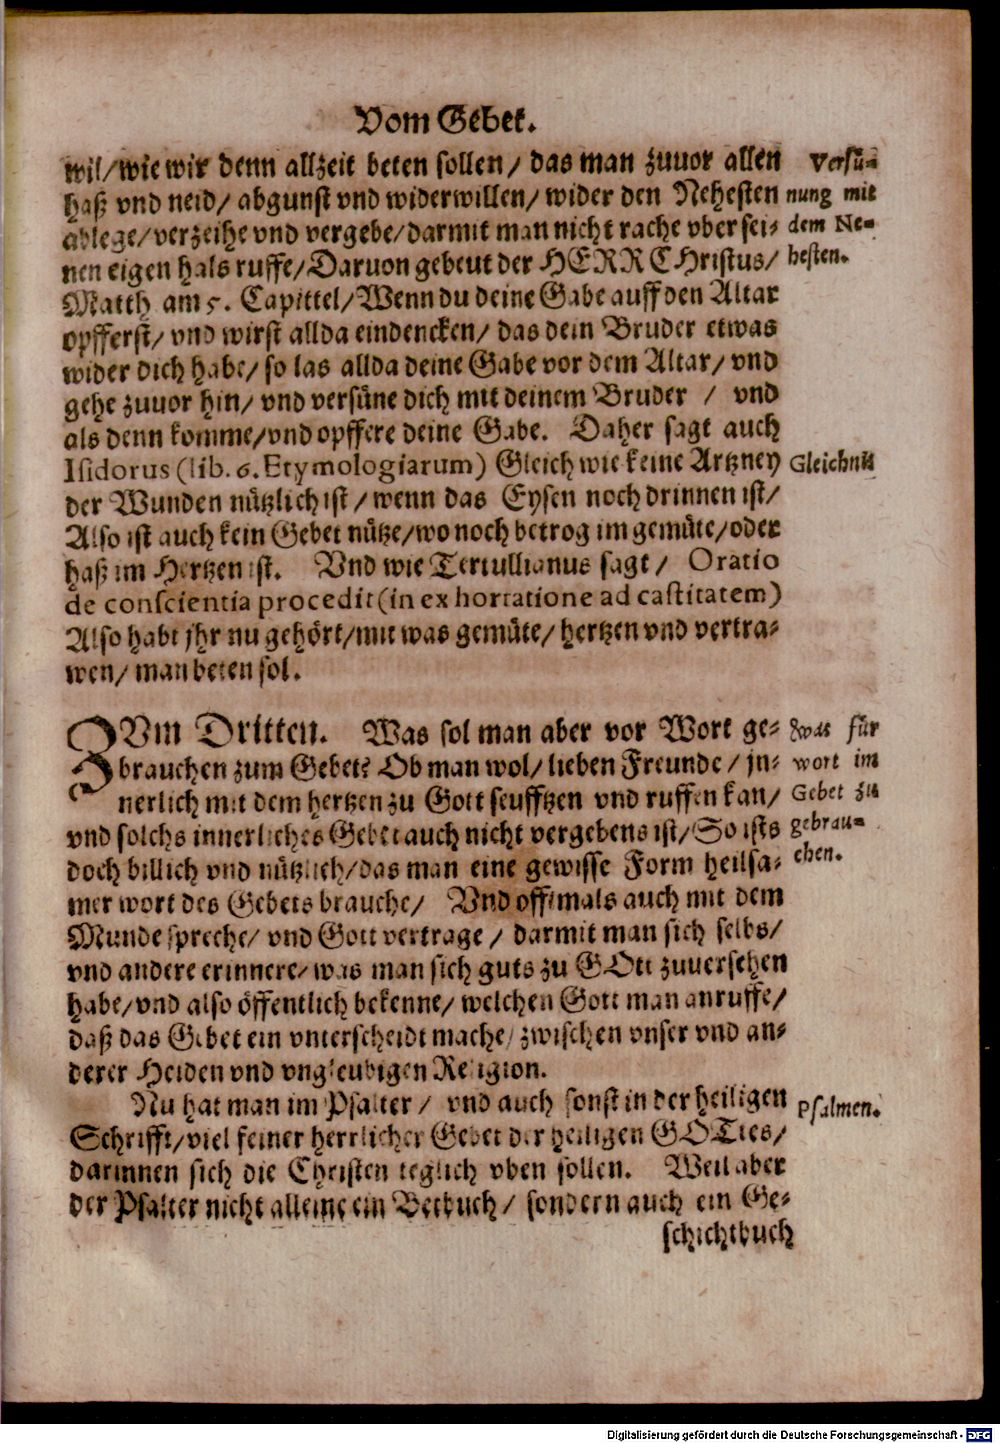 Vom Gebet.
wil/ wie wir denn allzeit beten sollen/ das man zuuor allen
haß vnd neid/ abgunst vnd widerwillen/ wider den Nehesten
ablege/ verzeihe vnd vergebe/ darmit man nicht rache vber sei-
nen eigen hals ruffe/ Daruon gebeut der HERR CHristus/
Matth am 5. Capittel/ Wenn du deine Gabe auff den Altar
opfferst/ vnd wirst allda eindencken/ das dein Bruder etwas
wider dich habe/ so las allda deine Gabe vor dem Altar/ vnd
gehe zuuor hin/ vnd versüne dich mit deinem Bruder / vnd
als denn komme/ vnd opffere deine Gabe. Daher sagt auch
Isidorus (lib. 6. Etymologiarum) Gleich wie keine Artzney
der Wunden nützlich ist / wenn das Eysen noch drinnen ist/
Also ist auch kein Gebet nütze/ wo noch betrog im gemüte/ oder
haß im Hertzen ist. Vnd wie Tertullianus sagt / Oratio
de conscientia procedit (in exhortatione ad castitatem)
Also habt jhr nu gehört/ mit was gemüte/ hertzen vnd vertra-
wen/ man beten sol.
Versü-
nung mit
dem Ne-
hesten.
Gleichnis
ZVm Dritten. Was sol man aber vor Wort ge-
brauchen zum Gebet? Ob man wol/ lieben Freunde/ jn-
nerlich mit dem hertzen zu Gott seufftzen vnd ruffen kan/
vnd solchs innerliches Gebet auch nicht vergebens ist/ So ists
doch billich vnd nützlich/ das man eine gewisse Form heilsa-
mer wort des Gebets brauche/ Vnd offtmals auch mit dem
Munde spreche/ vnd Gott vertrage / darmit man sich selbs/
vnd andere erinnere/ was man sich guts zu GOtt zuuersehen
habe/ vnd also öffentlich bekenne/ welchen Gott man anruffe/
daß das Gebet ein vnterscheidt mache/ zwischen vnser vnd an-
derer Heiden vnd vngleubigen Religion.
Was für
wort im
Gebet zu
gebrau-
chen.
Nu hat man im Psalter / vnd auch sonst in der heiligen
Schrifft/ viel feiner herrlicher Gebet der heiligen GOTtes/
darinnen sich die Christen teglich vben sollen. Weil aber
der Psalter nicht alleine ein Betbuch / sondern auch ein Ge-
schichtbuch
Psalmen.
Digitalisierung gefördert durch die Deutsche Forschungsgemeinschaft - DFG